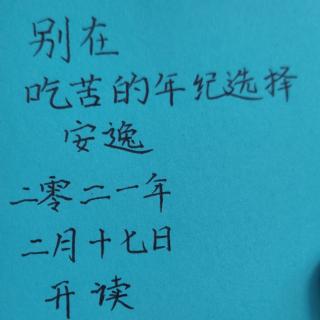 别在
吃苦的年纪选择
安逸
二零二一年
二月十七日
开读